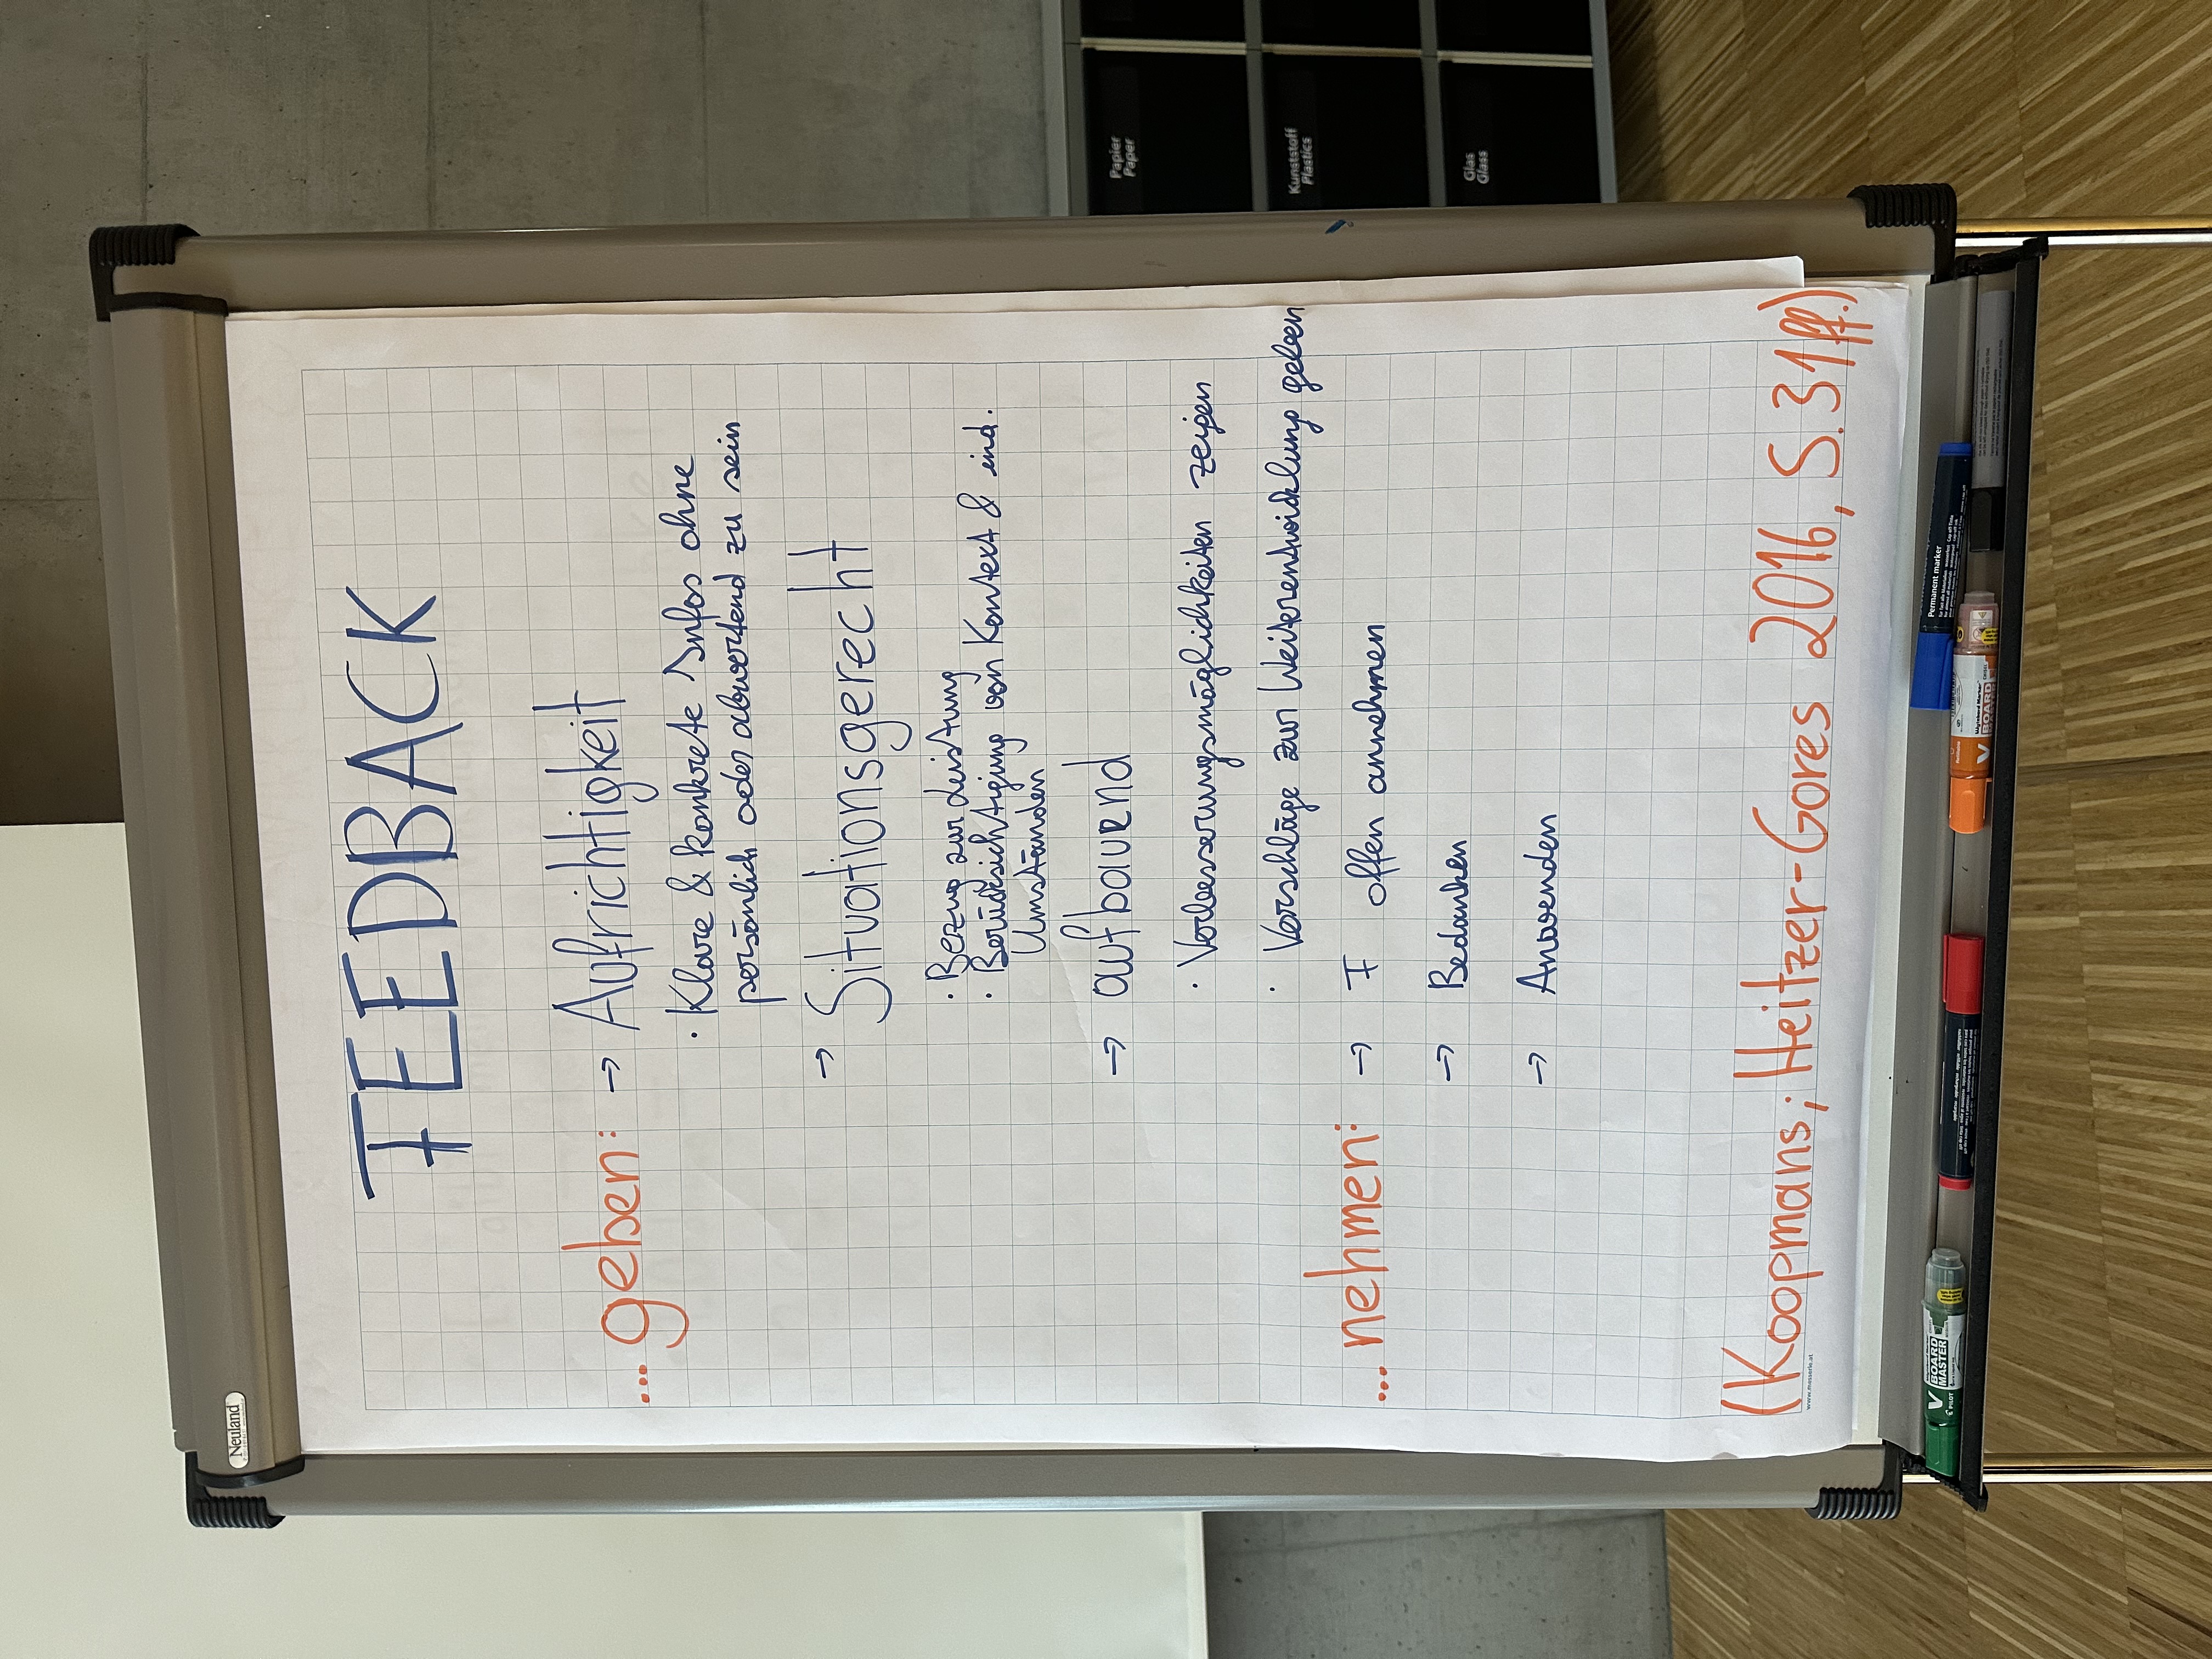 Neuland
FEEDBACK
...geben:
→ Aufrichtigkeit
· Klare & konkrete Infos ohne
persönlich oder abwertend zu sein
→ Situationsgerecht
· Bezug zur Leistung
· Berücksichtigung von Kontext & ind.
Umständen
→ aufbauend
· Verbesserungsmöglichkeiten zeigen
· Vorschläge zur Weiterentwicklung geben
...nehmen:
→ F offen annehmen
→ Bedanken
→ Anwenden
(Koopmans; Heitzer-Gores 2016, S. 31ff.)
www.messerle.at
Papier
Paper
Kunststoff
Plastics
Glas
Glass
V BOARD MASTER
PILOT
V BOARD
Permanent marker